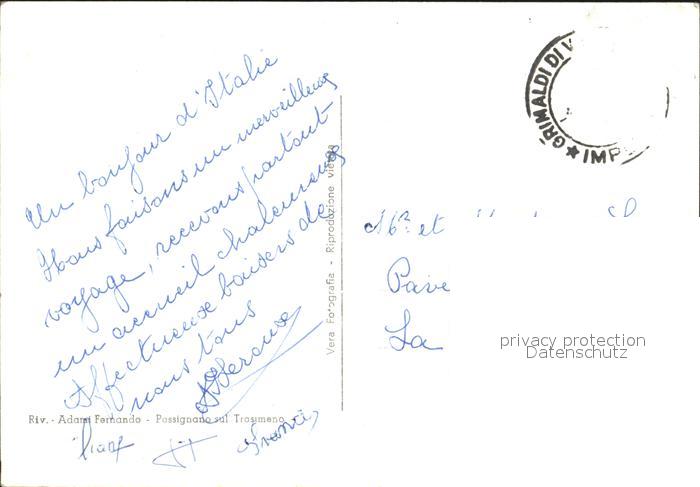 Un bonjour d'Italie
Nous faisons un merveilleux
voyage, recevons partout
un accueil chaleureux
Affectueux baisers de
nous tous
Riv. - Adami Fernando - Passignano sul Trasimeno
Francis
Vera Fotografia - Riproduzione vietata
GRIMALDI DI V
★ IMP
Mr et
Pave
La
privacy protection
Datenschutz